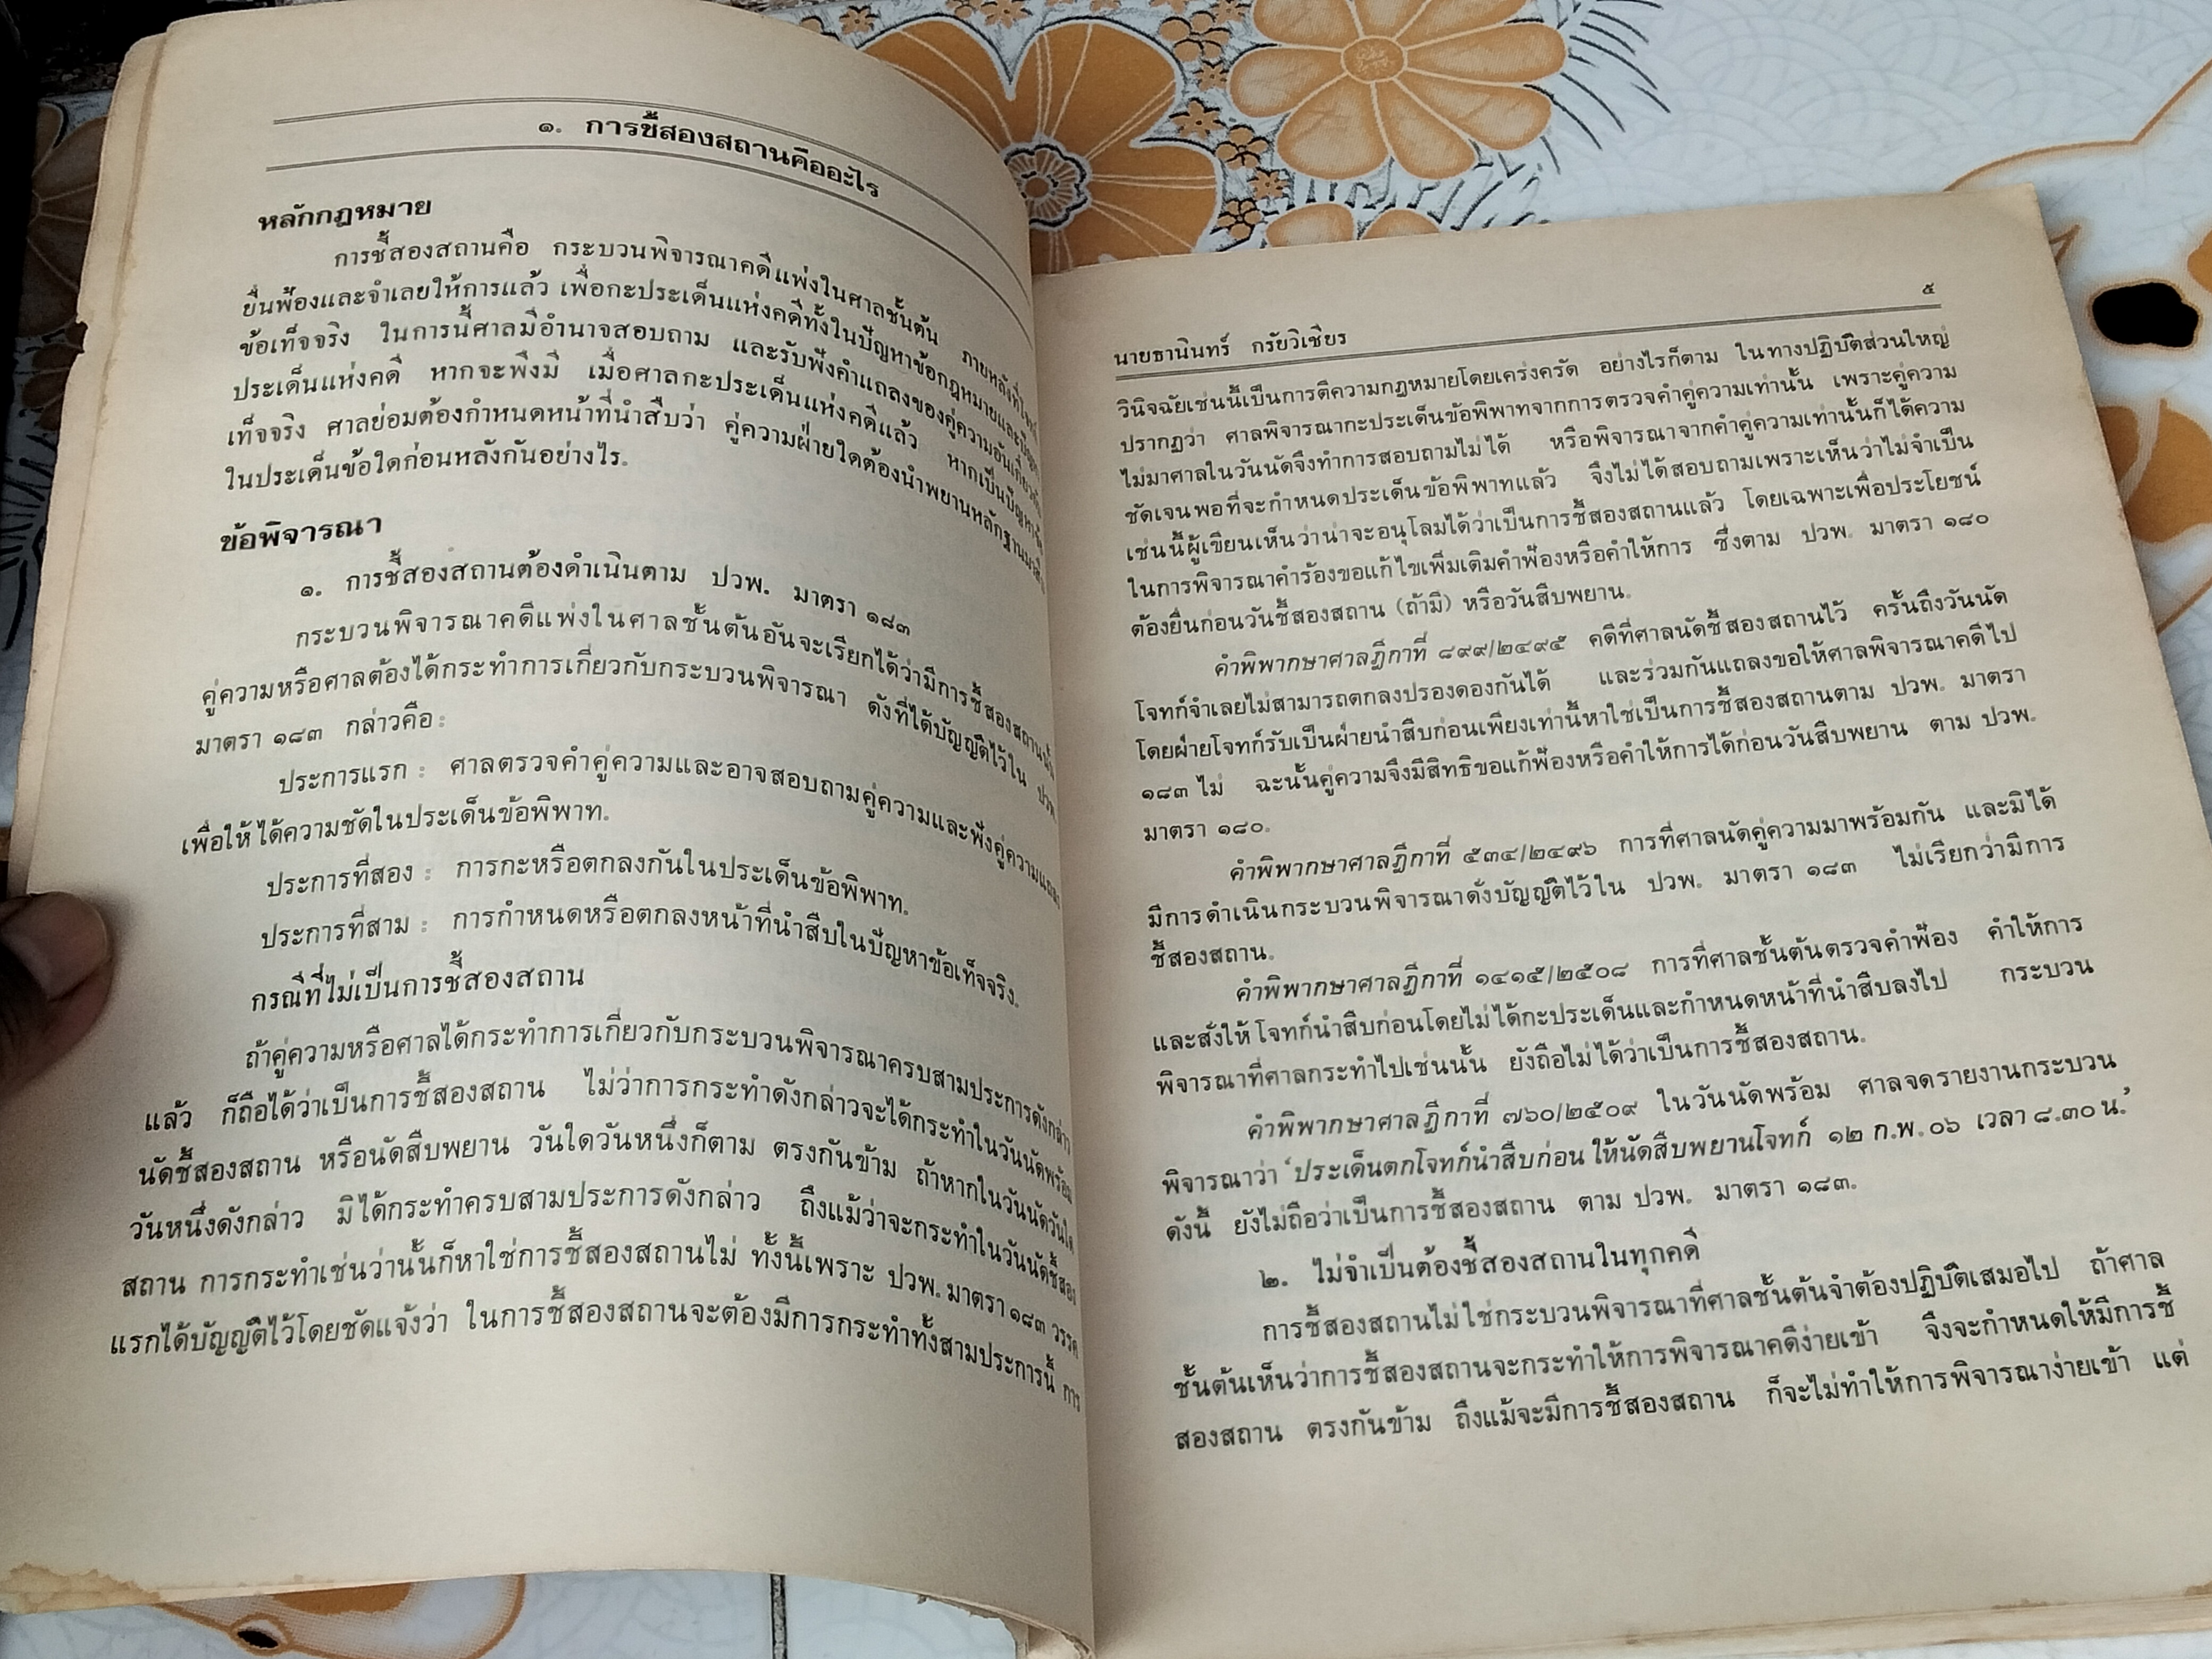 ๑. การชี้สองสถานคืออะไร
หลักกฎหมาย
การชี้สองสถานคือ กระบวนพิจารณาคดีแพ่งในศาลชั้นต้น ภายหลังที่โจทก์
ยื่นฟ้องและจำเลยให้การแล้ว เพื่อกะประเด็นแห่งคดีทั้งในปัญหาข้อกฎหมายและปัญหา
ข้อเท็จจริง ในการนี้ศาลมีอำนาจสอบถาม และรับฟังคำแถลงของคู่ความอันเกี่ยวกับ
ประเด็นแห่งคดี หากจะพึงมี เมื่อศาลกะประเด็นแห่งคดีแล้ว หากเป็นปัญหาข้อ
เท็จจริง ศาลย่อมต้องกำหนดหน้าที่นำสืบว่า คู่ความฝ่ายใดต้องนำพยานหลักฐานมาสืบ
ในประเด็นข้อใดก่อนหลังกันอย่างไร.
ข้อพิจารณา
๑. การชี้สองสถานต้องดำเนินตาม ปวพ. มาตรา ๑๘๓
กระบวนพิจารณาคดีแพ่งในศาลชั้นต้นอันจะเรียกได้ว่ามีการชี้สองสถานนั้น
คู่ความหรือศาลต้องได้กระทำการเกี่ยวกับกระบวนพิจารณา ดังที่ได้บัญญัติไว้ใน ปวพ.
มาตรา ๑๘๓ กล่าวคือ :
ประการแรก : ศาลตรวจคำคู่ความและอาจสอบถามคู่ความและฟังคู่ความแถลง
เพื่อให้ได้ความชัดในประเด็นข้อพิพาท.
ประการที่สอง : การกะหรือตกลงกันในประเด็นข้อพิพาท.
ประการที่สาม : การกำหนดหรือตกลงหน้าที่นำสืบในปัญหาข้อเท็จจริง.
กรณีที่ไม่เป็นการชี้สองสถาน
ถ้าคู่ความหรือศาลได้กระทำการเกี่ยวกับกระบวนพิจารณาครบสามประการดังกล่าว
แล้ว ก็ถือได้ว่าเป็นการชี้สองสถาน ไม่ว่าการกระทำดังกล่าวจะได้กระทำในวันนัดพร้อม
นัดชี้สองสถาน หรือนัดสืบพยาน วันใดวันหนึ่งก็ตาม ตรงกันข้าม ถ้าหากในวันนัดวันใด
วันหนึ่งดังกล่าว มิได้กระทำครบสามประการดังกล่าว ถึงแม้ว่าจะกระทำในวันนัดชี้สอง
สถาน การกระทำเช่นว่านั้นก็หาใช่การชี้สองสถานไม่ ทั้งนี้เพราะ ปวพ. มาตรา ๑๘๓ วรรค
แรกได้บัญญัติไว้โดยชัดแจ้งว่า ในการชี้สองสถานจะต้องมีการกระทำทั้งสามประการนี้ การ
๕
นายธานินทร์ กรัยวิเชียร
วินิจฉัยเช่นนี้เป็นการตีความกฎหมายโดยเคร่งครัด อย่างไรก็ตาม ในทางปฏิบัติส่วนใหญ่
ปรากฏว่า ศาลพิจารณากะประเด็นข้อพิพาทจากการตรวจคำคู่ความเท่านั้น เพราะคู่ความ
ไม่มาศาลในวันนัดจึงทำการสอบถามไม่ได้ หรือพิจารณาจากคำคู่ความเท่านั้นก็ได้ความ
ชัดเจนพอที่จะกำหนดประเด็นข้อพิพาทแล้ว จึงไม่ได้สอบถามเพราะเห็นว่าไม่จำเป็น
เช่นนี้ผู้เขียนเห็นว่าน่าจะอนุโลมได้ว่าเป็นการชี้สองสถานแล้ว โดยเฉพาะเพื่อประโยชน์
ในการพิจารณาคำร้องขอแก้ไขเพิ่มเติมคำฟ้องหรือคำให้การ ซึ่งตาม ปวพ. มาตรา ๑๘๐
ต้องยื่นก่อนวันชี้สองสถาน (ถ้ามี) หรือวันสืบพยาน.
คำพิพากษาศาลฎีกาที่ ๘๙๙/๒๔๙๕ คดีที่ศาลนัดชี้สองสถานไว้ ครั้นถึงวันนัด
โจทก์จำเลยไม่สามารถตกลงปรองดองกันได้ และร่วมกันแถลงขอให้ศาลพิจารณาคดีไป
โดยฝ่ายโจทก์รับเป็นฝ่ายนำสืบก่อนเพียงเท่านี้หาใช่เป็นการชี้สองสถานตาม ปวพ. มาตรา
๑๘๓ ไม่ ฉะนั้นคู่ความจึงมีสิทธิขอแก้ฟ้องหรือคำให้การได้ก่อนวันสืบพยาน ตาม ปวพ.
มาตรา ๑๘๐.
คำพิพากษาศาลฎีกาที่ ๕๓๔/๒๔๙๖ การที่ศาลนัดคู่ความมาพร้อมกัน และมิได้
มีการดำเนินกระบวนพิจารณาดั่งบัญญัติไว้ใน ปวพ. มาตรา ๑๘๓ ไม่เรียกว่ามีการ
ชี้สองสถาน.
คำพิพากษาศาลฎีกาที่ ๑๔๑๕/๒๕๐๘ การที่ศาลชั้นต้นตรวจคำฟ้อง คำให้การ
และสั่งให้โจทก์นำสืบก่อนโดยไม่ได้กะประเด็นและกำหนดหน้าที่นำสืบลงไป กระบวน
พิจารณาที่ศาลกระทำไปเช่นนั้น ยังถือไม่ได้ว่าเป็นการชี้สองสถาน.
คำพิพากษาศาลฎีกาที่ ๗๖๐/๒๕๐๙ ในวันนัดพร้อม ศาลจดรายงานกระบวน
พิจารณาว่า ‘ประเด็นตกโจทก์นำสืบก่อน ให้นัดสืบพยานโจทก์ ๑๒ ก.พ. ๐๖ เวลา ๘.๓๐ น.’
ดังนี้ ยังไม่ถือว่าเป็นการชี้สองสถาน ตาม ปวพ. มาตรา ๑๘๓.
๒. ไม่จำเป็นต้องชี้สองสถานในทุกคดี
การชี้สองสถานไม่ใช่กระบวนพิจารณาที่ศาลชั้นต้นจำต้องปฏิบัติเสมอไป ถ้าศาล
ชั้นต้นเห็นว่าการชี้สองสถานจะกระทำให้การพิจารณาคดีง่ายเข้า จึงจะกำหนดให้มีการชี้
สองสถาน ตรงกันข้าม ถึงแม้จะมีการชี้สองสถาน ก็จะไม่ทำให้การพิจารณาง่ายเข้า แต่